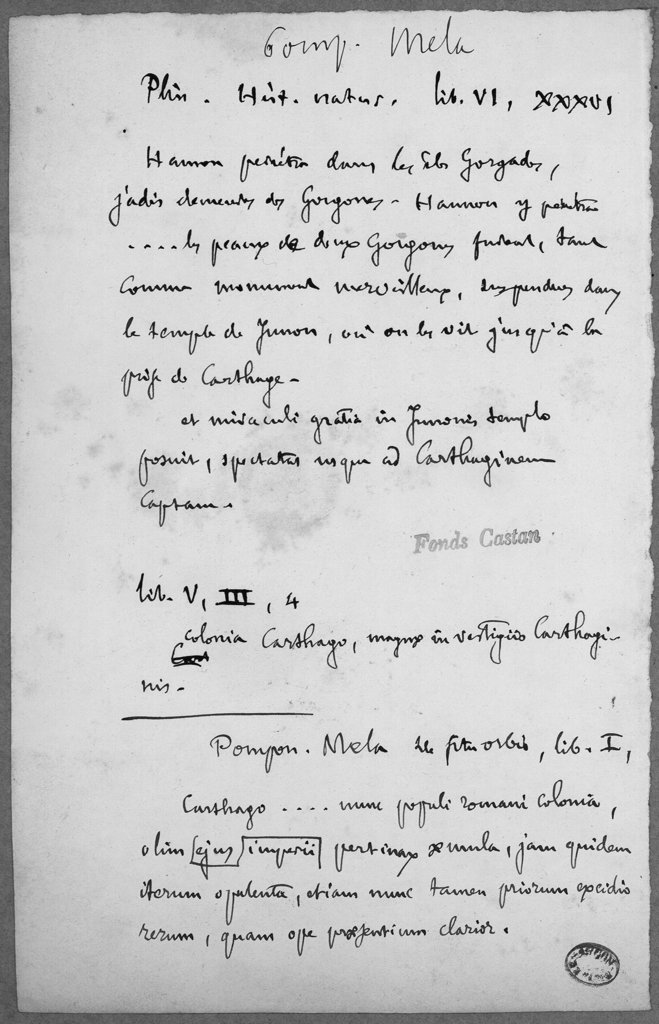 Comp. Mela
Plin. Hist. natur. lib. VI, XXXVI
Hannon pénétra dans les îles Gorgades,
jadis demeures des Gorgones. Hannon y pénétra
.... les peaux de deux Gorgones furent, tant
comme monument merveilleux, suspendues dans
le temple de Junon, où on les vit jusqu'à la
prise de Carthage.
et miraculi gratia in Junonis templo
posuit, spectatas usque ad Carthaginem
captam.
Fonds Castan
lib. V, III, 4
colonia Carthago, magnæ in vestigiis Carthagi-
nis.
Pompon. Mela de situ orbis, lib. I,
Carthago .... nunc populi romani colonia,
olim ejus imperii pertinax æmula, jam quidem
iterum opulenta, etiam nunc tamen priorum excidio
rerum, quam ope præsentium clarior.